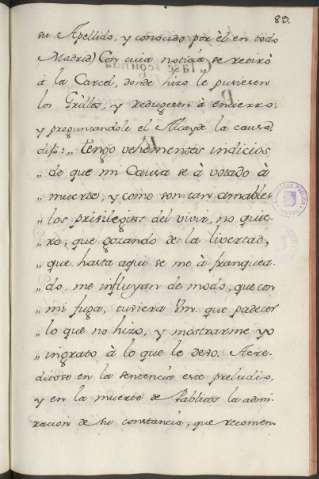 83.
su Apellido, y conocido por èl en todo
Madrid) Con cuia noticia se retirò
à la Carcel, donde hizo le pusiesen
los Grillos, y redugesen à encierro;
y preguntandole el Alcayde la causa
dijo: „ tengo vehementes indicios
„ de que mi Causa se à votado à
„ muerte, y como son tan amables
„ los privilegios del vivir, no quie-
„ ro, que gozando de la libertad,
„ que hasta aqui se me à franquea-
„ do, me influyan de modo, que con
„ mi fuga, tuviera Vm. que padecer
„ lo que no hizo, y mostrarme yo
„ ingrato à lo que le devo. Acre-
ditose en la sentencia este preludio,
y en la muerte de Pablitos la admi-
racion de su constancia, que recomen-